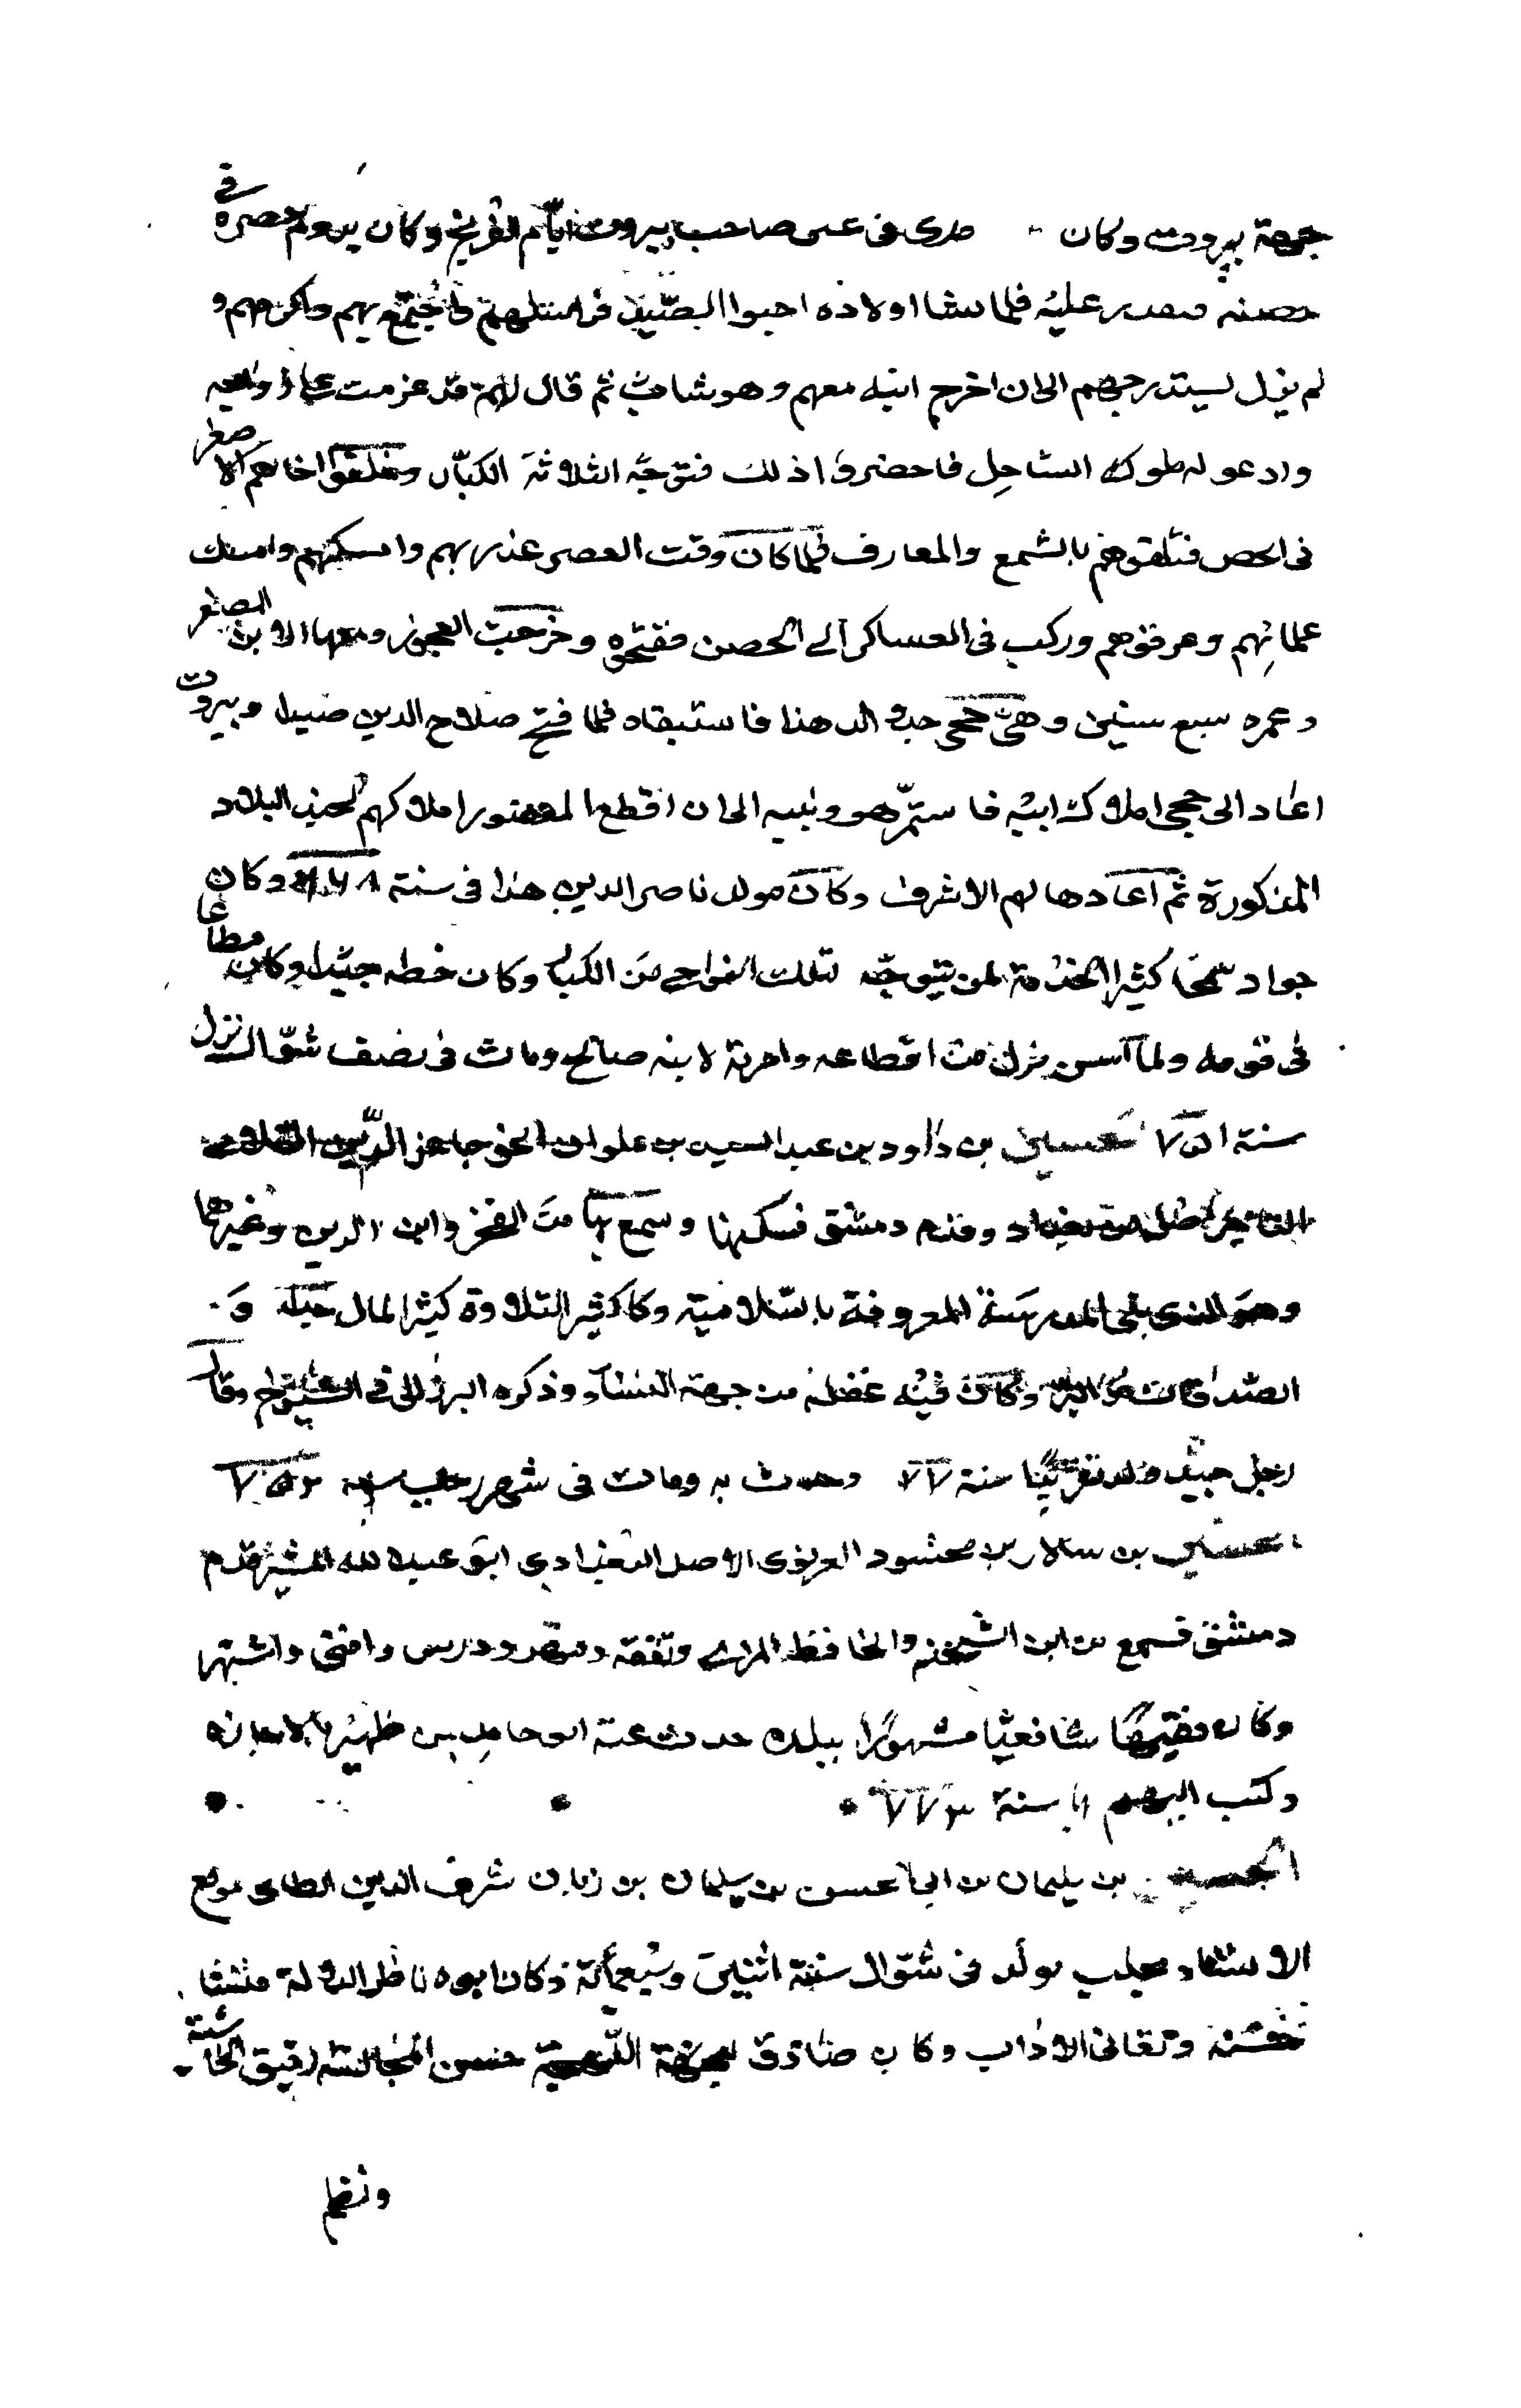 جهة بيروت وكان صاحب بيروت ايام الفرنج وكان يروم حصره في
حصنه فيتعذر عليه فلما نشا اولاده احبوا الصيد فراسلهم فاجتمع بهم واكرمهم و
لم يزل يستدرجهم الى ان اخرج ابنه معهم وهو شاب ثم قال لهم قد عزمت على
وادعو له ملوك الساحل فاحضروا اذلك فتوجه الثلاثة الكبار وتخلف اخاهم الاصغر
في الحصن فتلقوهم بالشمع والمعازف فلما كان وقت العصر غدر بهم وامسكهم وامسك
غلمانهم وغرقوهم وركب في العساكر الى الحصن ففتحوه وخرجت العجوز ومعها الابن الصغير
وعمره سبع سنين وهو حجى جد والد هذا فاستبقاه فلما فتح صلاح الدين صيدا وبيروت
اعاد الى حجى املاك ابيه فاستمر هو وبنيه الى ان اقطع المنصور املاكهم لجند البلاد
المذكورة ثم اعادها لهم الاشرف وكان مولد ناصر الدين هذا في سنة وكان
جواد سمحا كثير الخدمة لمن يتوجه لتلك النواحي من الكبار وكان خطه جيدا وكان مطاعا
في قومه ولما اسن نزل عن اقطاعه وامريته لابنه صالح ومات في نصف شوال
سنة ٧٥١ حسين بن داود بن عبد السيد بن علوان الخوجا عز الدين السلامي
التاجر اصله من بغداد وقدم دمشق فسكنها وسمع بها من الفخر وابن الزين وغيرهما
وهو الذي بنى المدرسة المعروفة بالسلامية وكان كثير التلاوة كثير المال جيد و
الصدقات والبر وكان فيه غفلة من جهة النساء وذكره البرزالي في الشيوخ وقال
رجل جيد ولد تقريبا سنة وحدث به ومات في شهر رجب سنة ٧٥٣
الحسين بن سالار بن محمود الغزنوي الاصل البغدادي ابو عبد الله المشير قدم
دمشق فسمع من ابن الشحنة والحافظ المزي وتفقه ودرس وافتى واشتهر
وكان فقيها شافعيا مشهورا ببلده حدث عنه ابو حامد بن ظهيرة بالاجازة
وكتب اليهم بها سنة ٧٧٣
الحسين بن سليمان بن ابي الحسن بن سليمان بن ريان شرف الدين الطائي موقع
الانشاء بحلب مولده في شوال سنة اثنين وسبعمائة وكان ابوه ناظر الدولة فنشا
وتعانى الاداب وكان صادق اللهجة حسن المجالسة رقيق الحاشية
ونظم